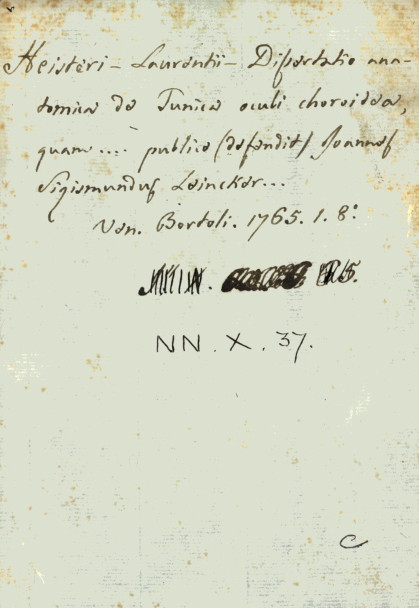 Heisteri - Laurentii - Dissertatio ana-
tomica de Tunica oculi choroidea,
quam .... publice (defendit) Joannes
Sigismundus Leincker...
Ven. Bortoli. 1765. 1. 8º
NN. X. 37.
C